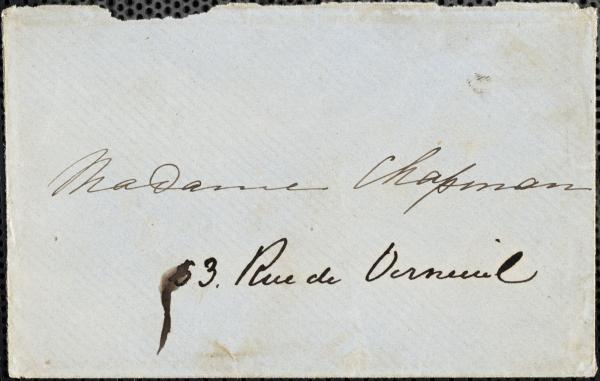 Madame Chapman
53. Rue de Verneuil